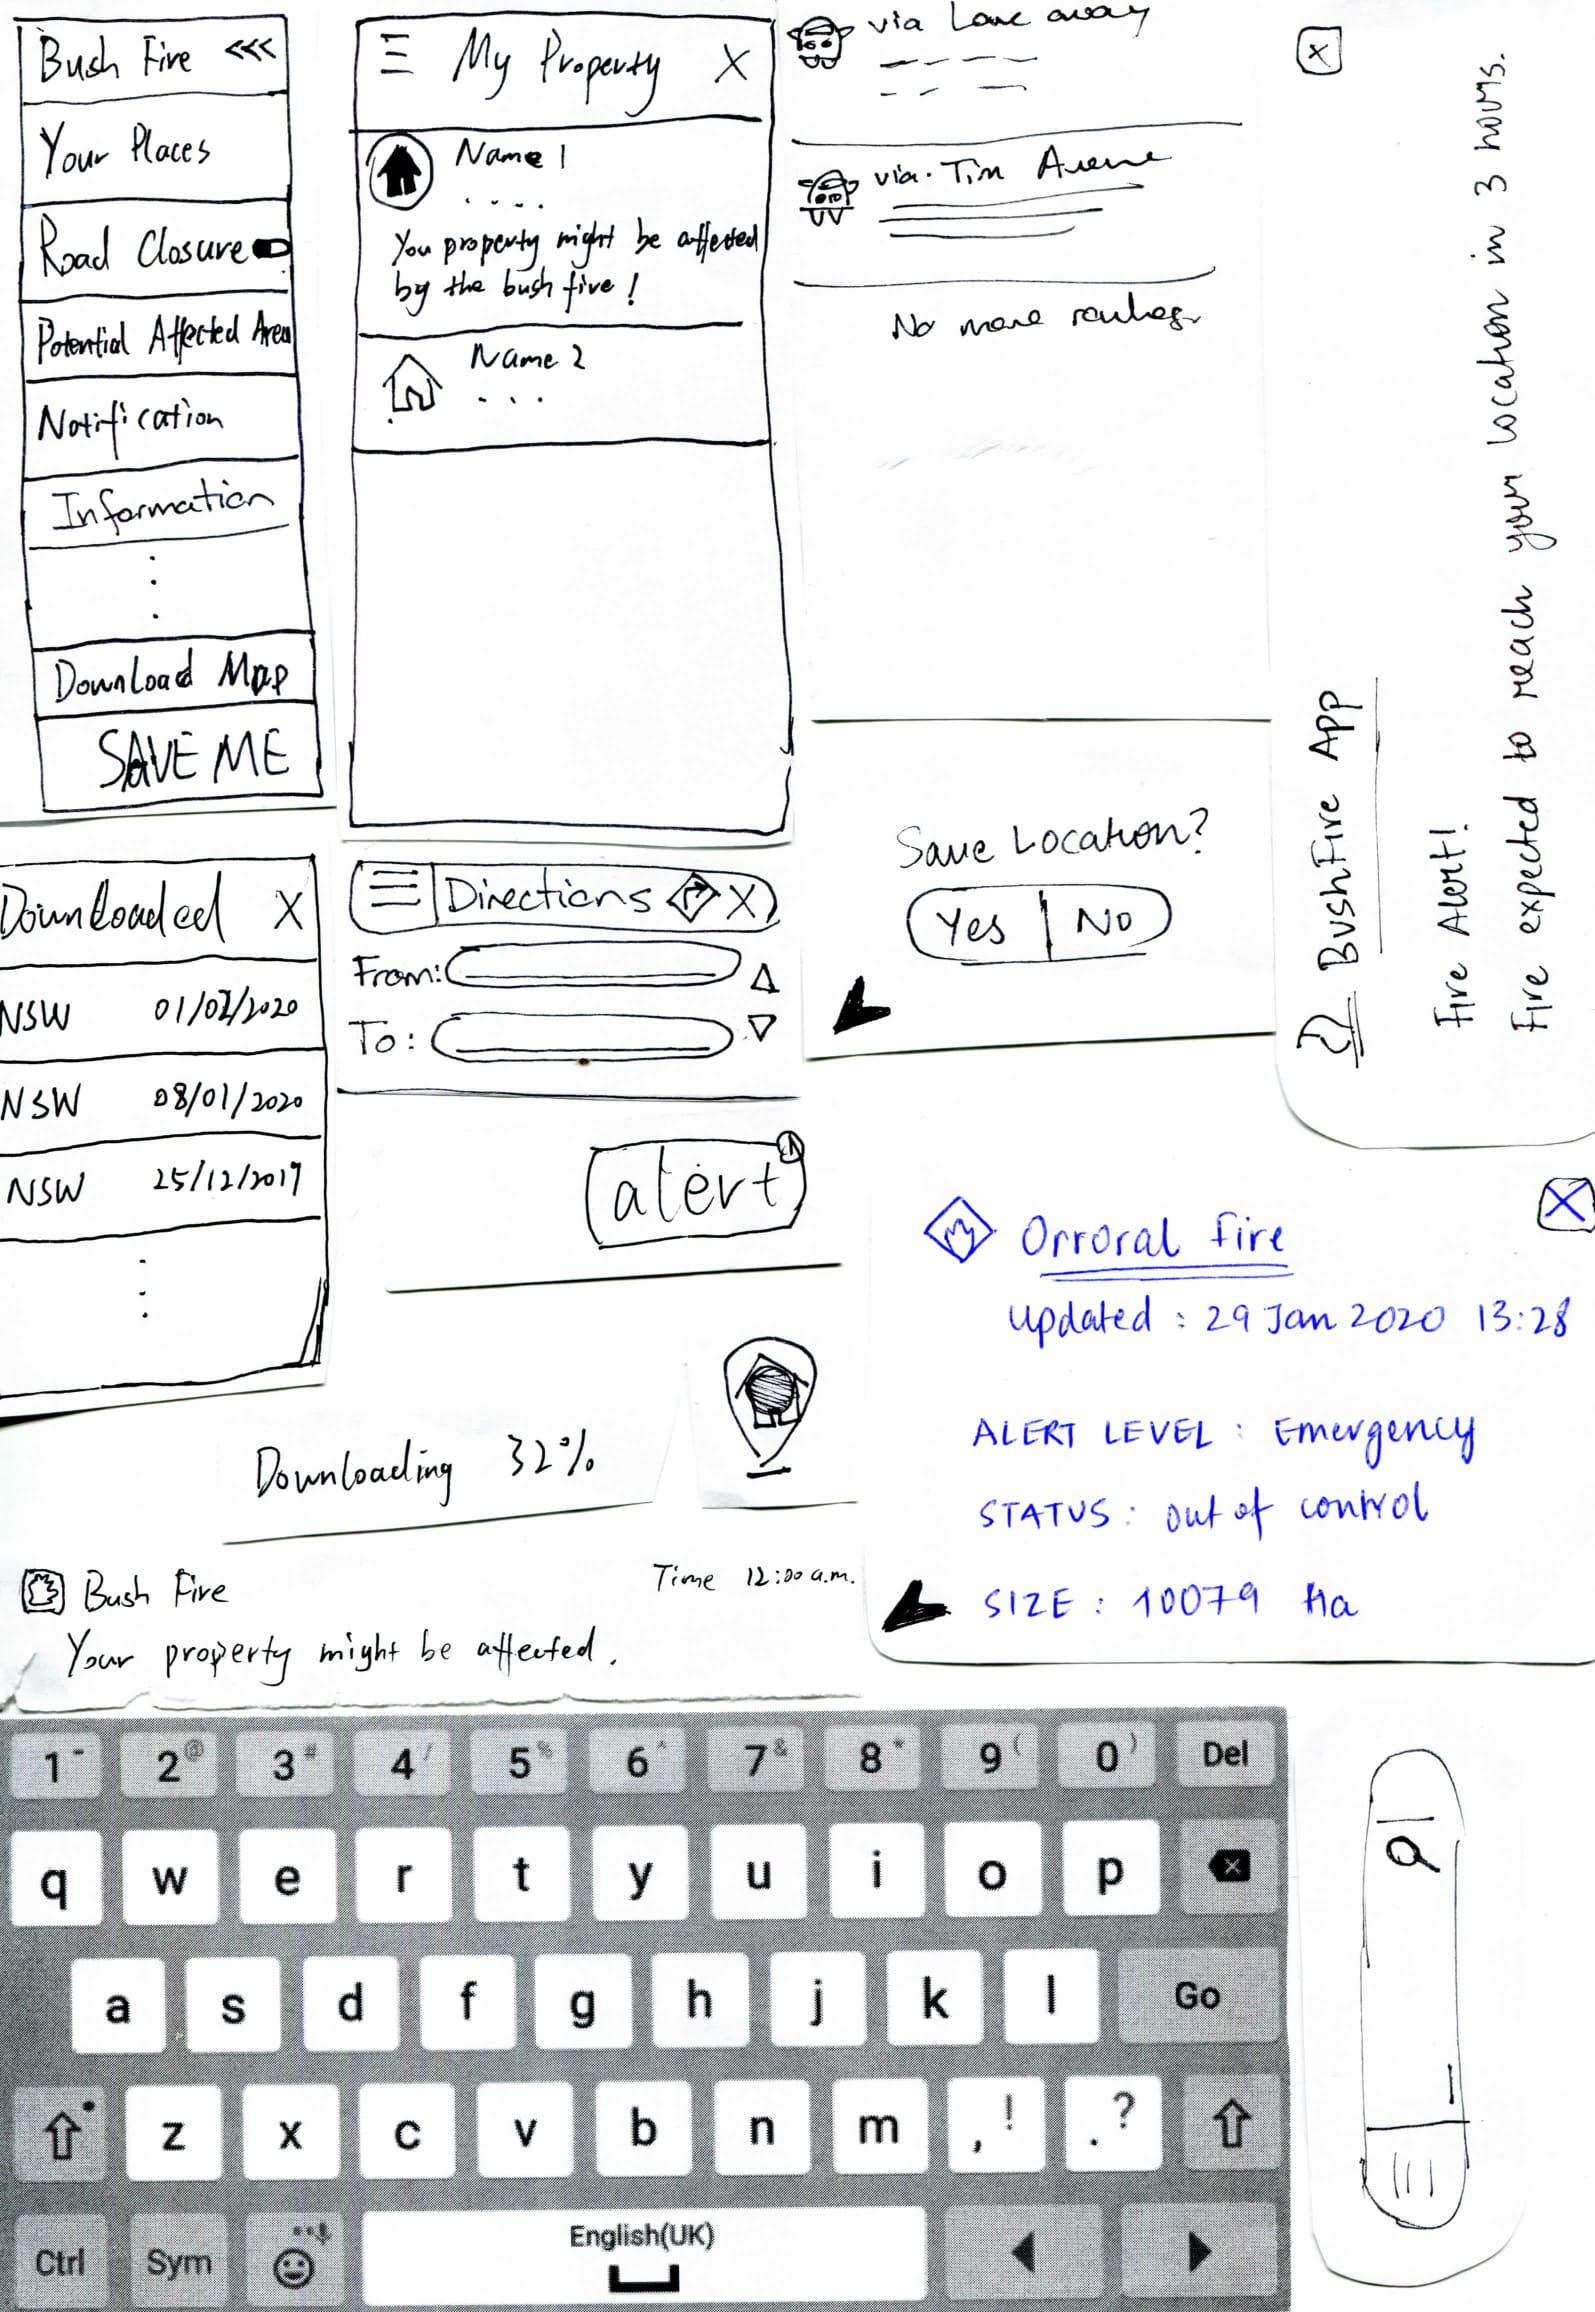 Bush Fire <<<
Your Places
Road Closure
Potential Affected Area
Notification
Information
Download Map
SAVE ME
My Property X
Name 1
You property might be affected
by the bush fire!
Name 2
via Lane away
via. Tim Avenue
No more
Save Location?
Yes No
X
BushFire App
Fire Alert!
Fire expected to reach your location in 3 hours.
Downloaded X
NSW 01/02/2020
NSW 08/01/2020
NSW 25/12/2019
Directions X
From:
To:
alert
Downloading 32%
Orroral Fire X
updated : 29 Jan 2020 13:28
ALERT LEVEL : Emergency
STATUS : out of control
SIZE : 10079 Ha
Bush Fire Time 12:00 a.m.
Your property might be affected.
1 - 2 @ 3 # 4 / 5 % 6 ^ 7 & 8 * 9 ( 0 ) Del
q w e r t y u i o p
a s d f g h j k l Go
z x c v b n m , ! . ?
Ctrl Sym English(UK)